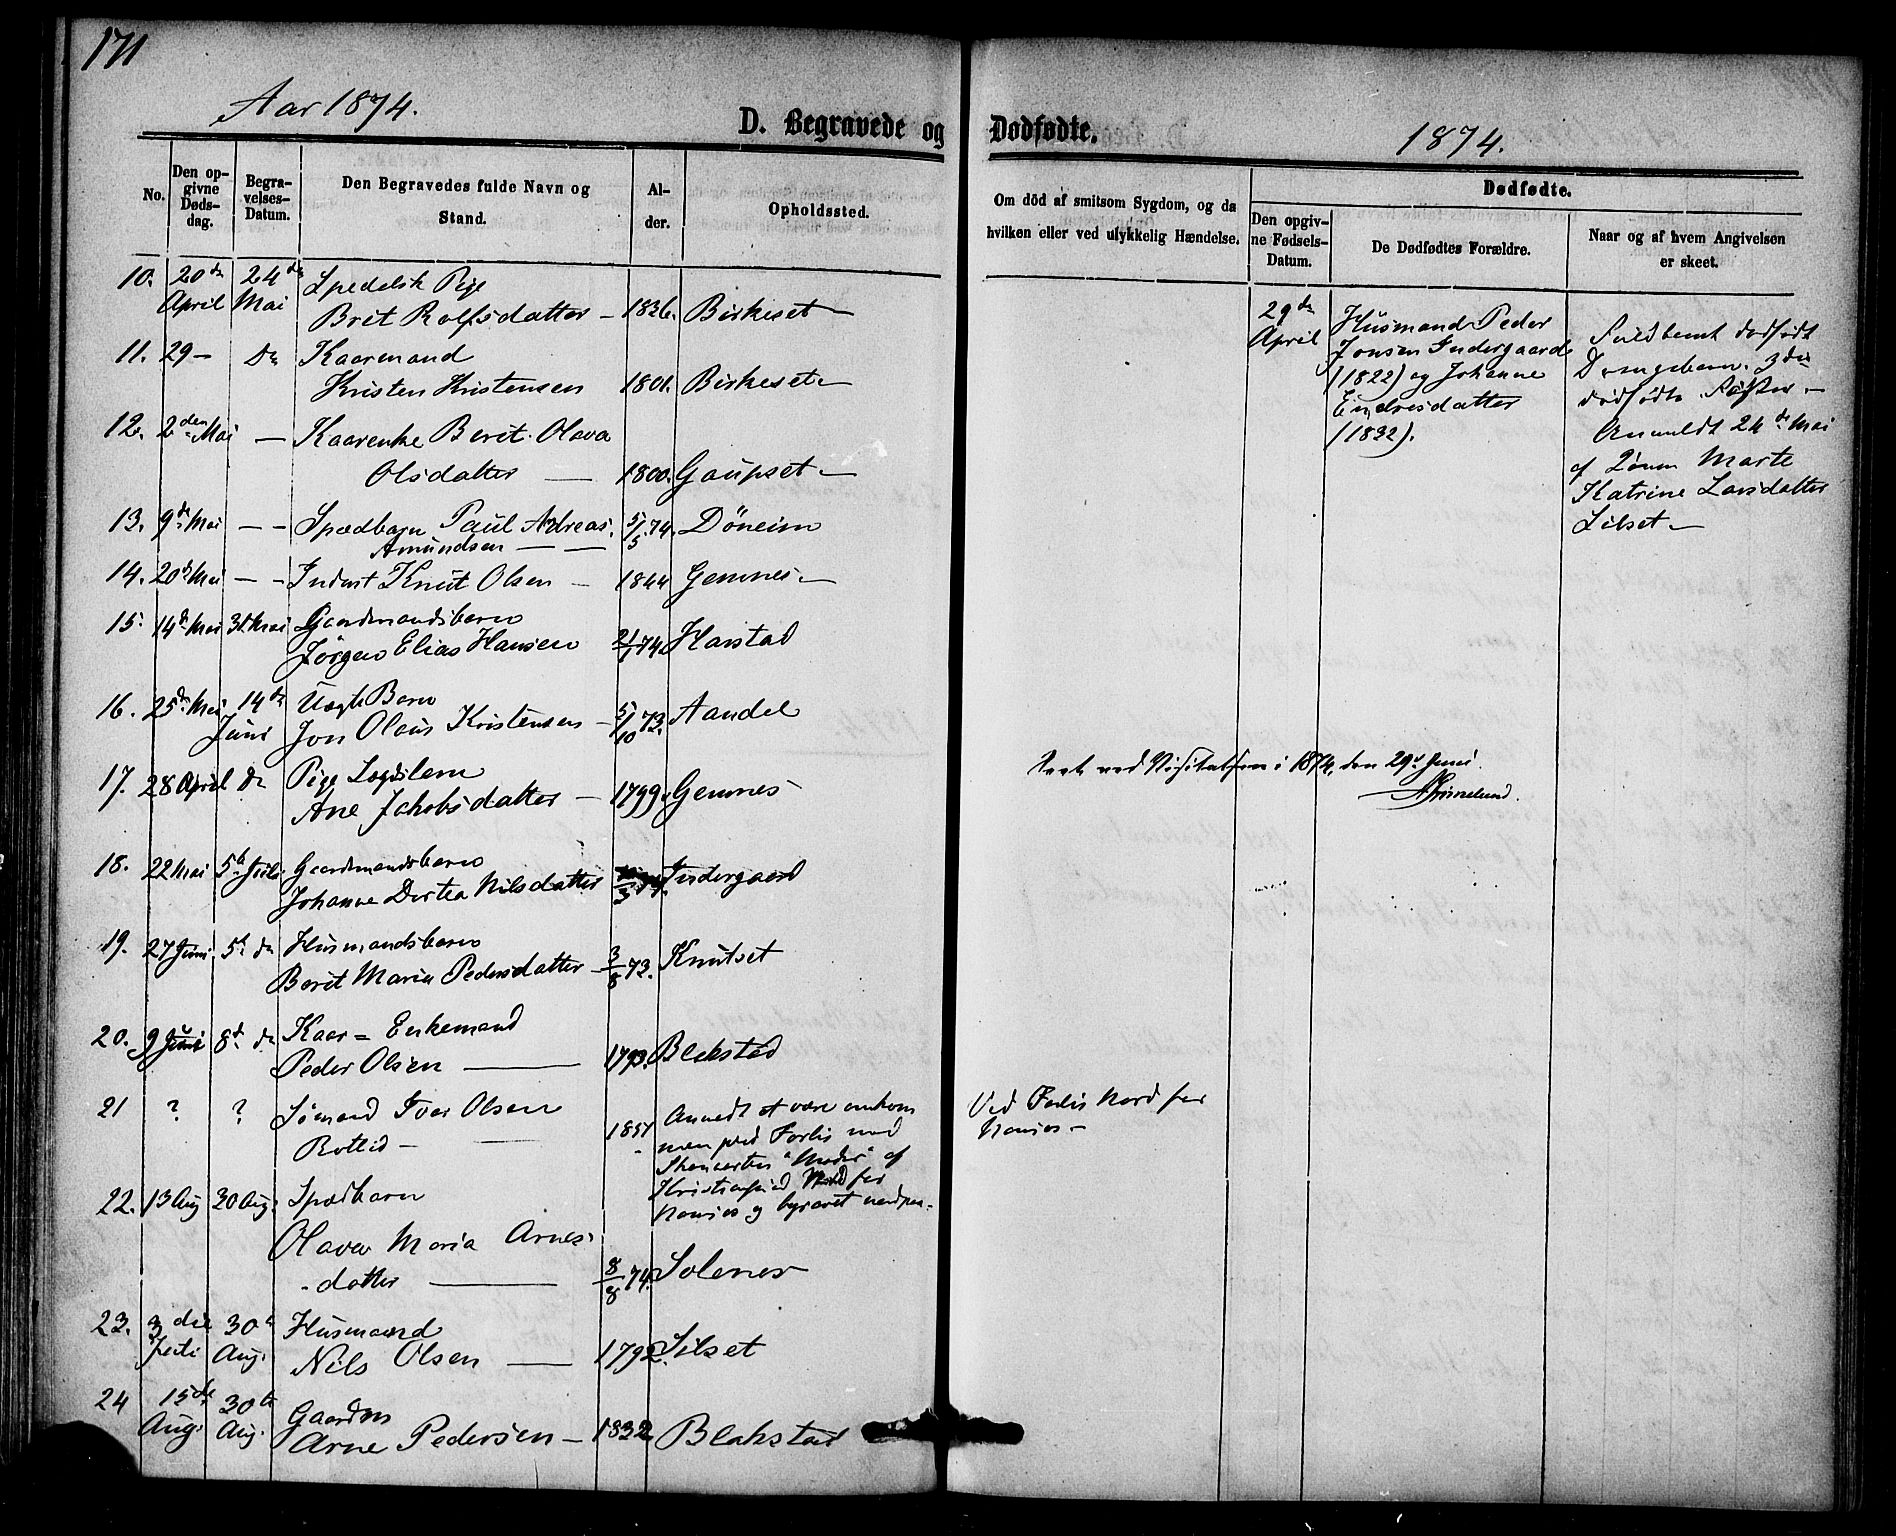 171
Aar 1874.
D. Begravede og Dødfødte.
1874.
No.
Den opgivne Dødsdag.
Begravelses-Datum.
Den Begravedes fulde Navn og Stand.
Alder.
Opholdssted.
Om död af smitsom Sygdom, og da hvilken eller ved ulykkelig Hændelse.
Dødfødte.
Den opgivne Fødsels-Datum.
De Dødfødtes Forældre.
Naar og af hvem Angivelsen er skeet.
10. 20de April 24de Mai Spedalsk Pige
Brit Rolfsdatter – 1836. Birkeset –
11. 29 – Do Kaarmand
Kristen Kristensen 1801. Birkeset –
12. 2den Mai — Kaarenke Berit Olava
Olsdatter — 1800. Gaupset –
13. 9de Mai – – Spædbarn Paul Andreas
Amundsen — — 5/5 74. Döneim
14. 20de Mai – – Inderst Knut Olsen – 1844 Gemnes –
15. 14de Mai 31 Mai Gaardmandsbarn
Jörgen Elias Hansen 21/1 74. Harstad
16. 25de Mai 14de Juni Uægte Barn
Jon Olaus Kristensen – 5/10 73. Aandal
17. 28 April do Pige Lægdslem
Ane Jakobsdatter – 1799. Gemnes
18. 22 Mai 5te Juli Gaardmandsbarn
Johanne Dortea Nilsdatter /3 74. Indergaard
19. 27 Juni 5te do Husmandsbarn
Berit Maria Pedersdatter – 3/8 73. Knutset
20. 9 Juni 8de do Kaar = Enkemand
Peder Olsen — 1793. Blakstad
21 ? ? Sömand Iver Olsen
– 1851
Anmeldt at være omkom
men ved Forlis med
af
Kristiansund Nord for
og begravet
Ved Forlis Nord for
22. 13 Aug 30 Aug. Spædbarn
Olava Maria Arnes-
datter — 8/8 74. Solenes
23. 3die Juli 30te Aug. Husmand
Nils Olsen — 1792. Silset
24 15de Aug. 30te Aug. Gaardm
Arne Pedersen – 1832 Blakstad
29de April
Husmand Peder
Jonsen Indergaard
(1822) og Johanne
Endresdatter
(1832).
Fuldbaaret dødfødt
Drengebarn. 3die
dödfödte Foster –
Anmeldt 24de Mai
af Konen Marte
Katrine Larsdatter
Silset –
Seet ved Visitatsen i 1874, den 29de Juni.